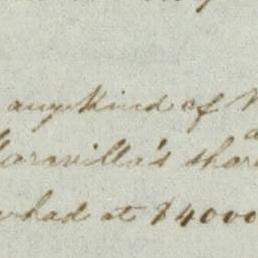 any kind of
Maravilla's shar
had at $4000